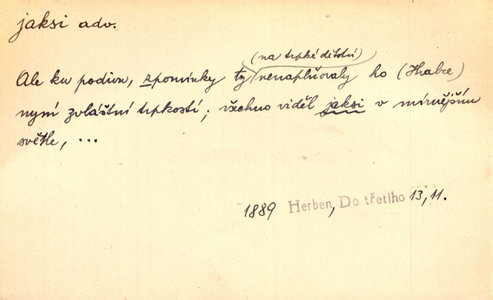 jaksi adv.
(na trpké dětství)
Ale ku podivu, zpomínky ty nenaplňovaly ho (Hrabce)
nyní zvláštní trpkostí; všechno viděl jaksi v mírnějším
světle, ...
1889 Herben, Do třetího 13, 11.